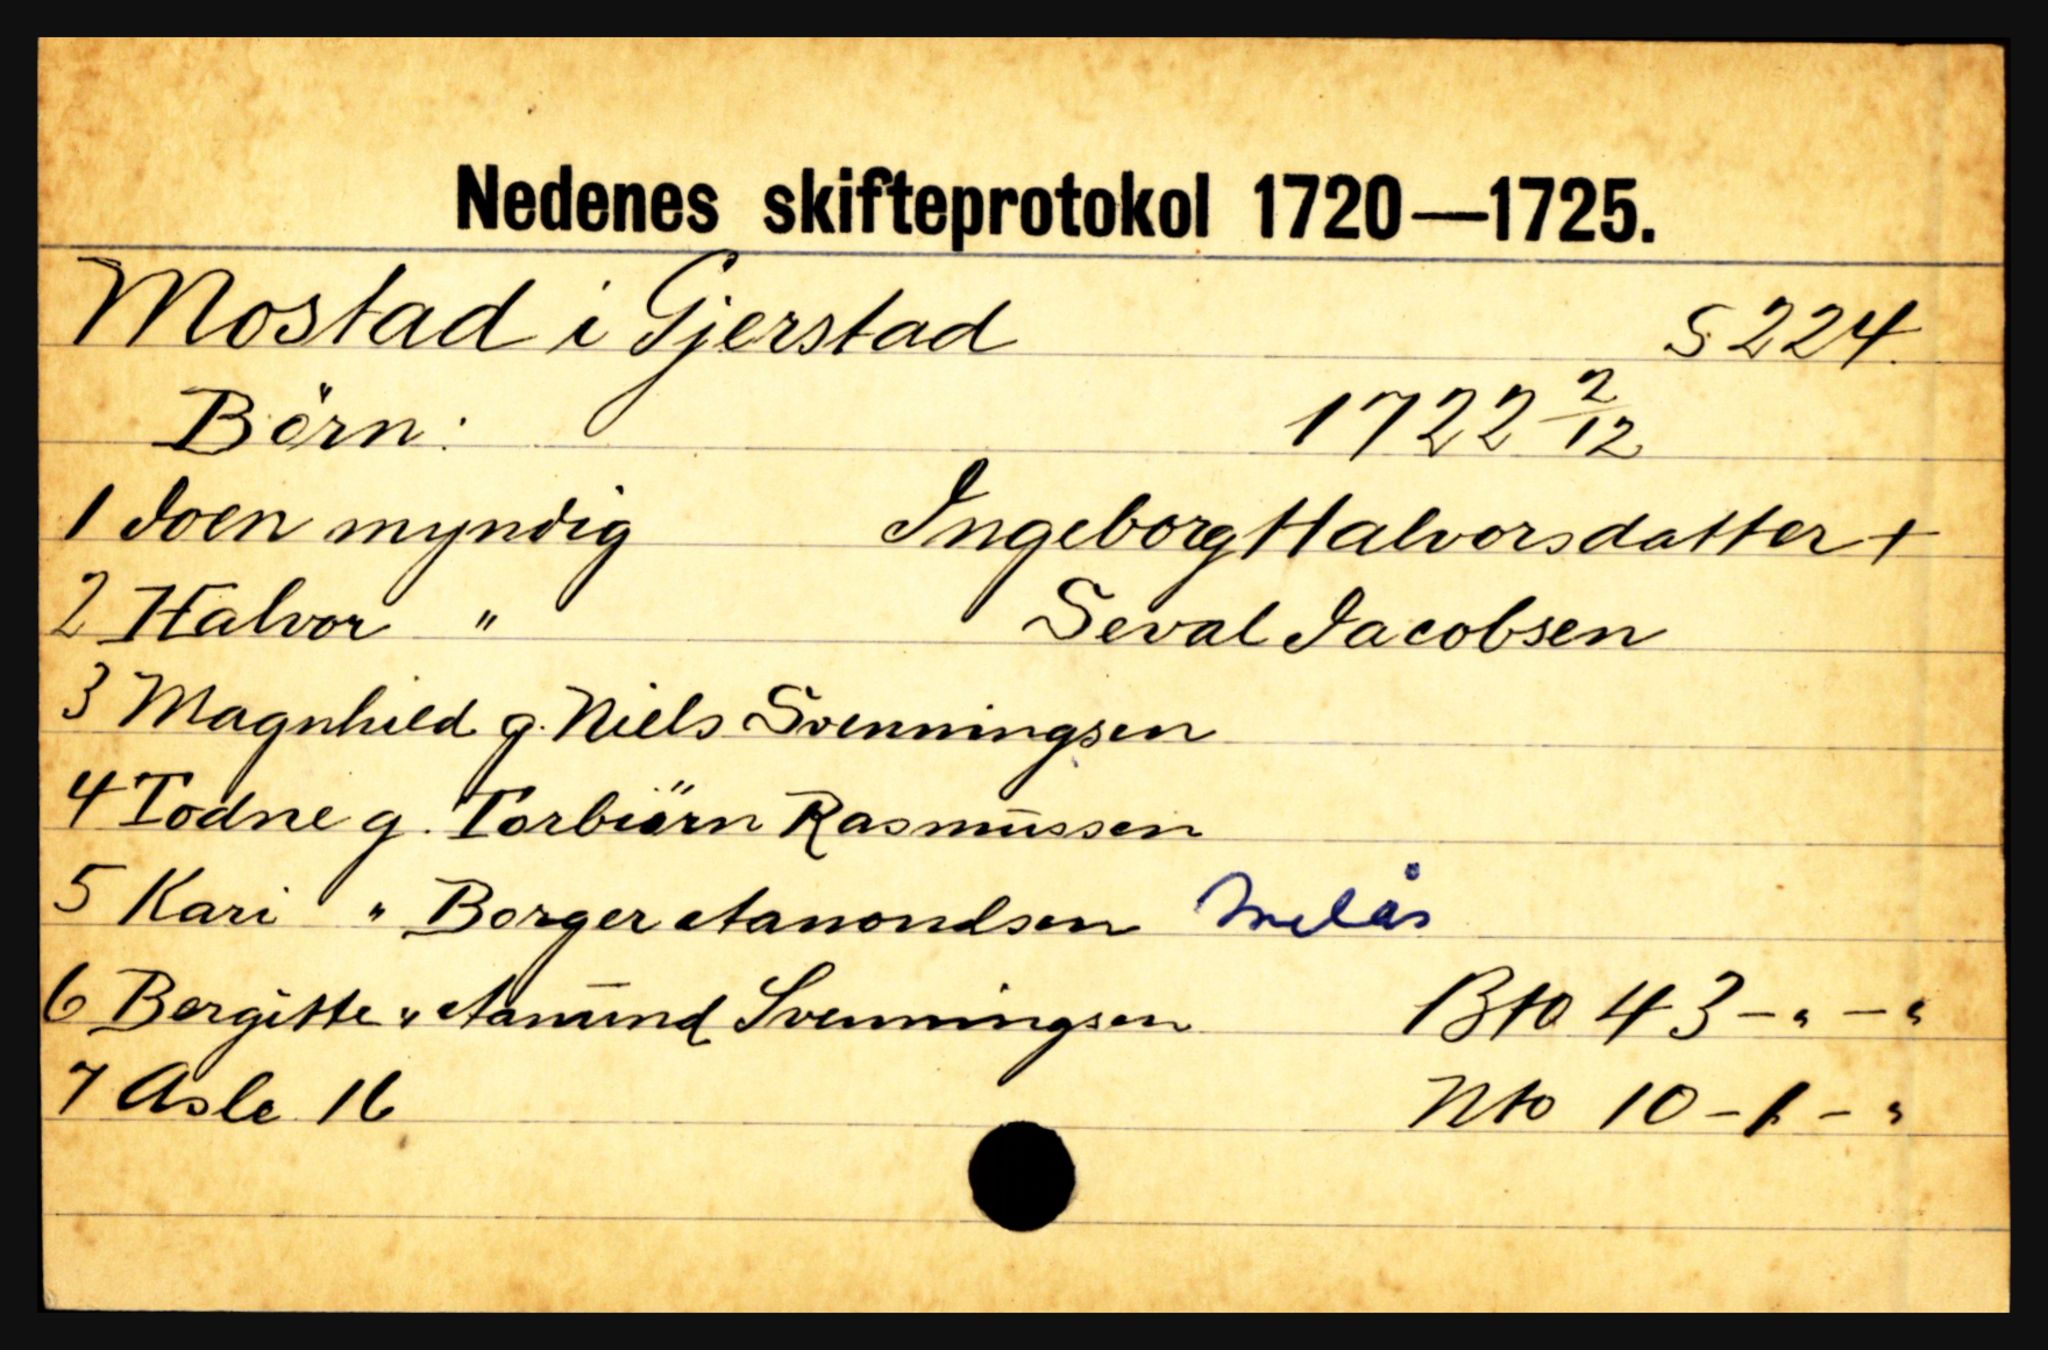 Nedenes skifteprotokol 1720—1725.
Mostad i Gjerstad S 224.
Börn: 1722 2/12
1 Joen myndig Ingeborg Halvorsdatter +
2 Halvor " Seval Jacobsen
3 Magnhild g. Niels Svenningsen
4 Todne g. Torbiörn Rasmussen
5 Kari " Borger Aamondsen Melås
6 Bergitte " Aamund Svenningsen Bto 43 - " - "
7 Asle 16 Nto 10 - 1 - "